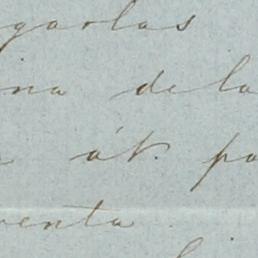 garlas
ina de la
át. pa
venta